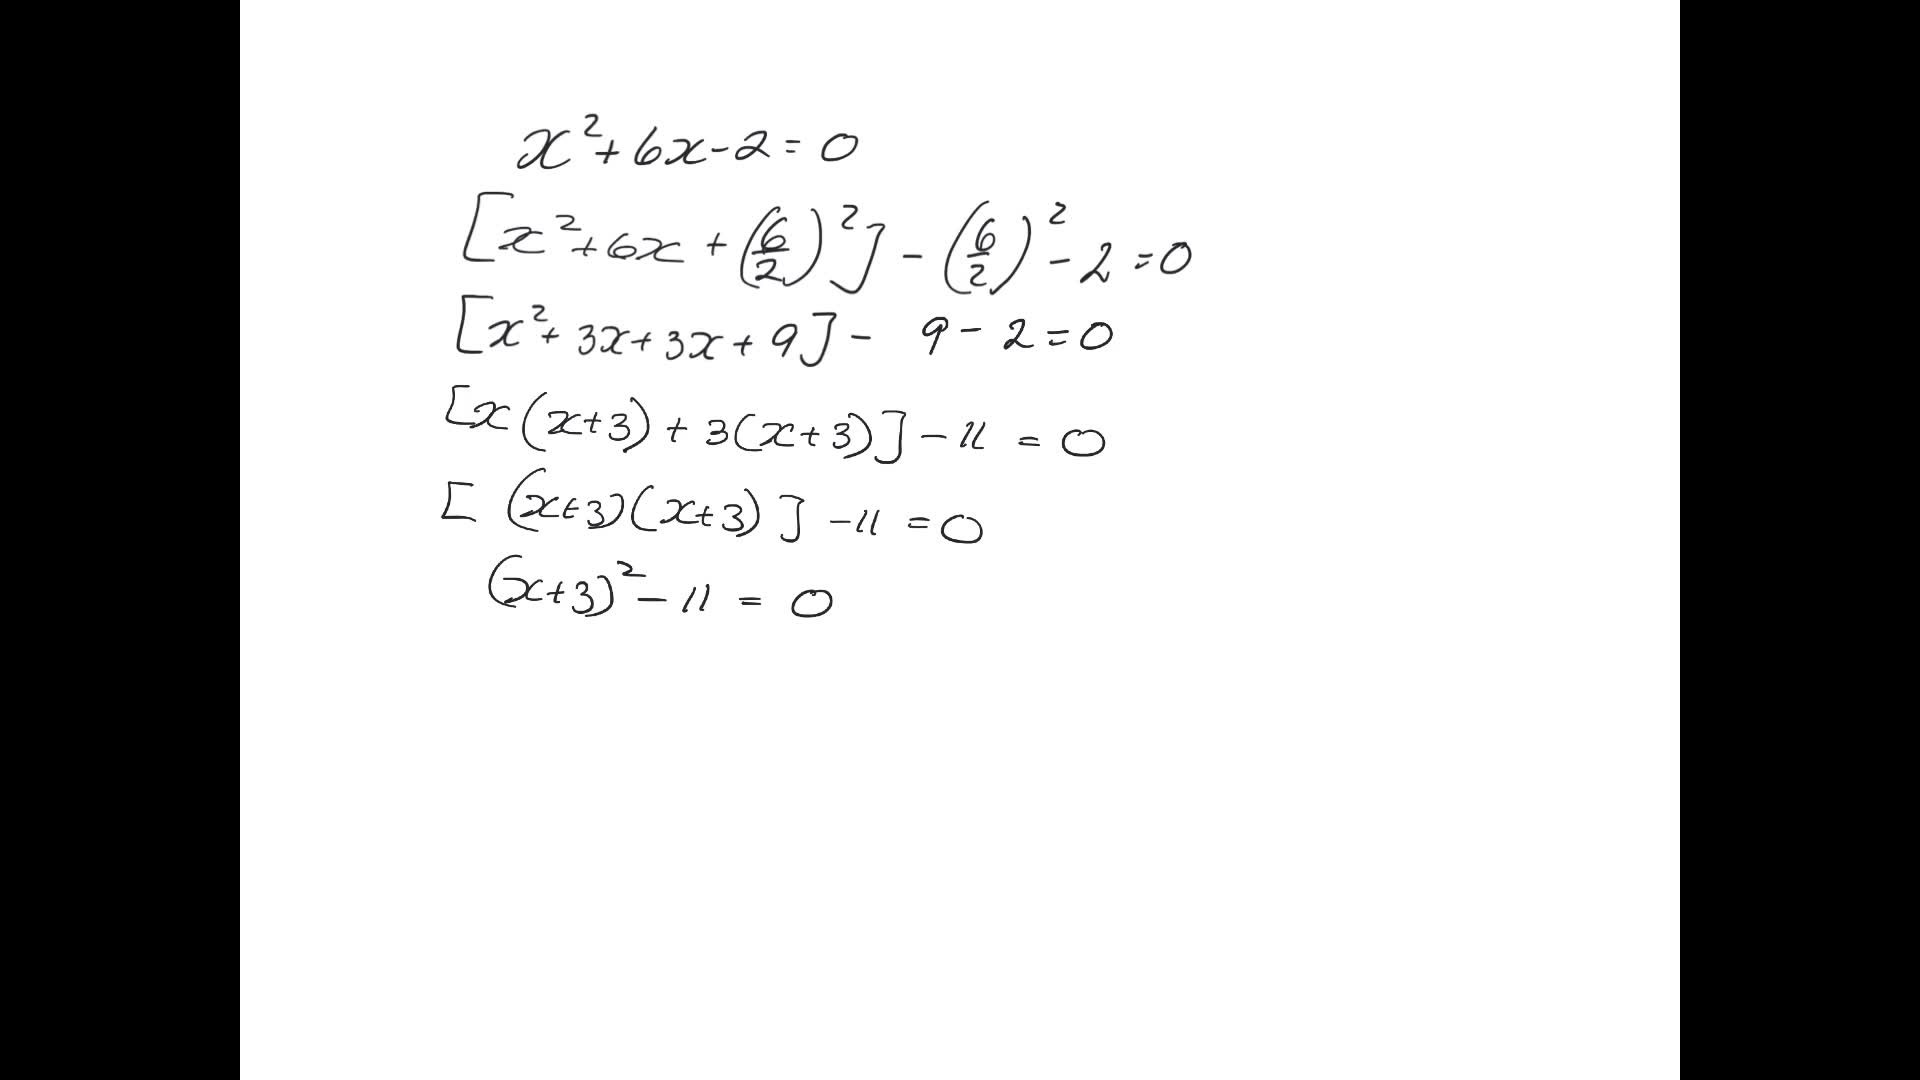 x² + 6x - 2 = 0
[x² + 6x + (6/2)²] - (6/2)² - 2 = 0
[x² + 3x + 3x + 9] - 9 - 2 = 0
[x(x+3) + 3(x+3)] - 11 = 0
[(x+3)(x+3)] - 11 = 0
(x+3)² - 11 = 0